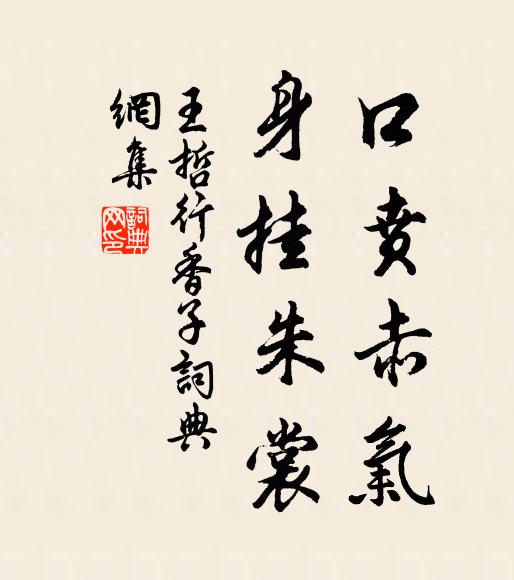 口賁赤氣
身挂朱裳
王哲行香子詞典
網集
詞典網印